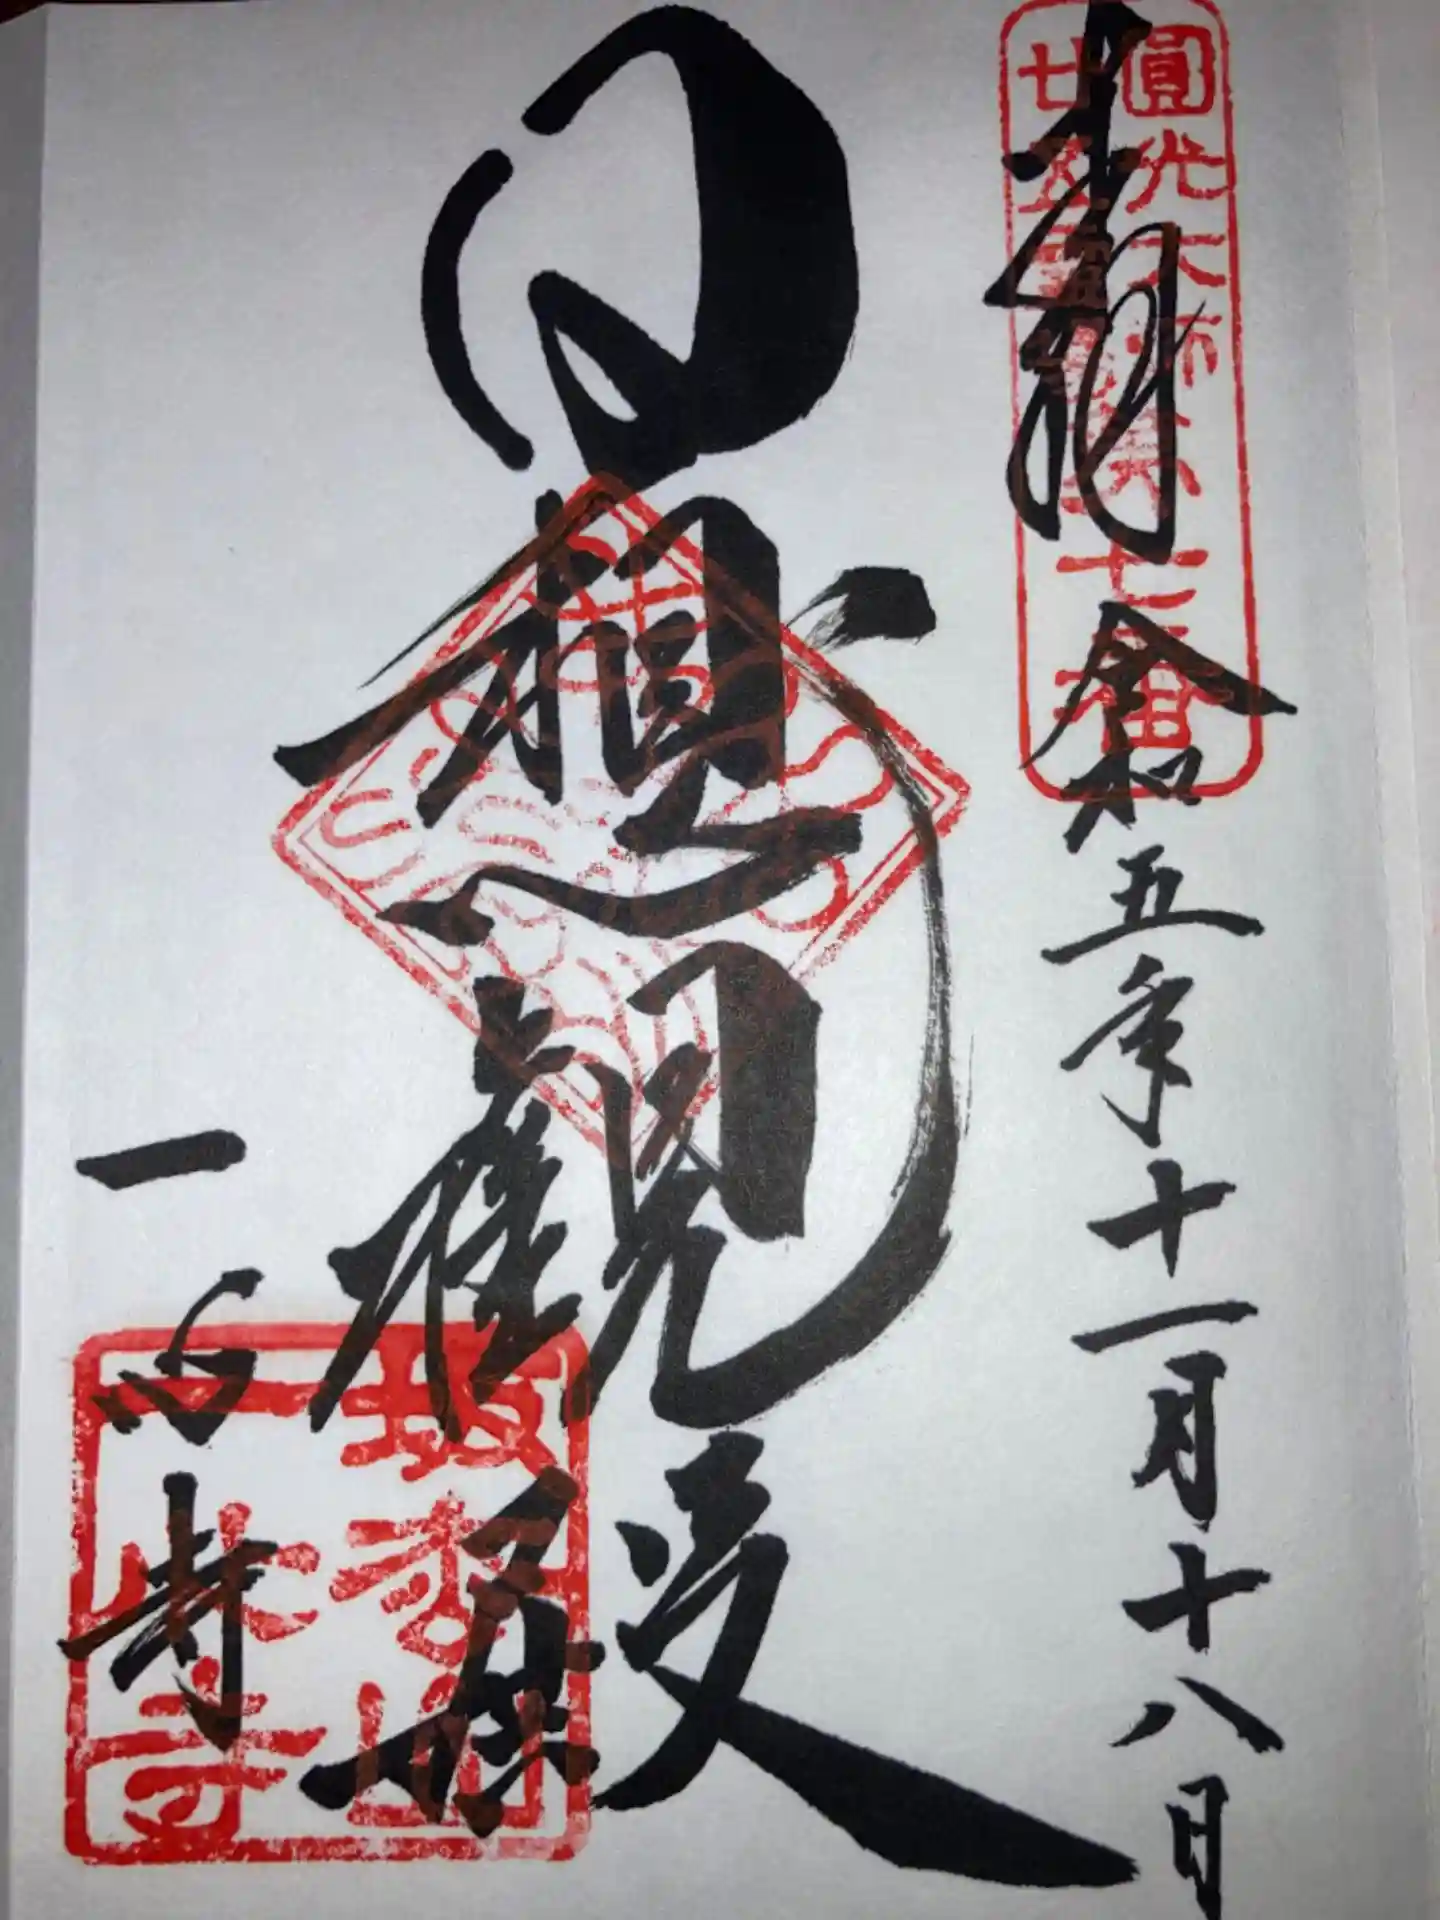 圓光大師
廿五霊場
第七番
奉拝
令和五年十一月十八日
日想観殿
一心寺
坂松山
一心寺